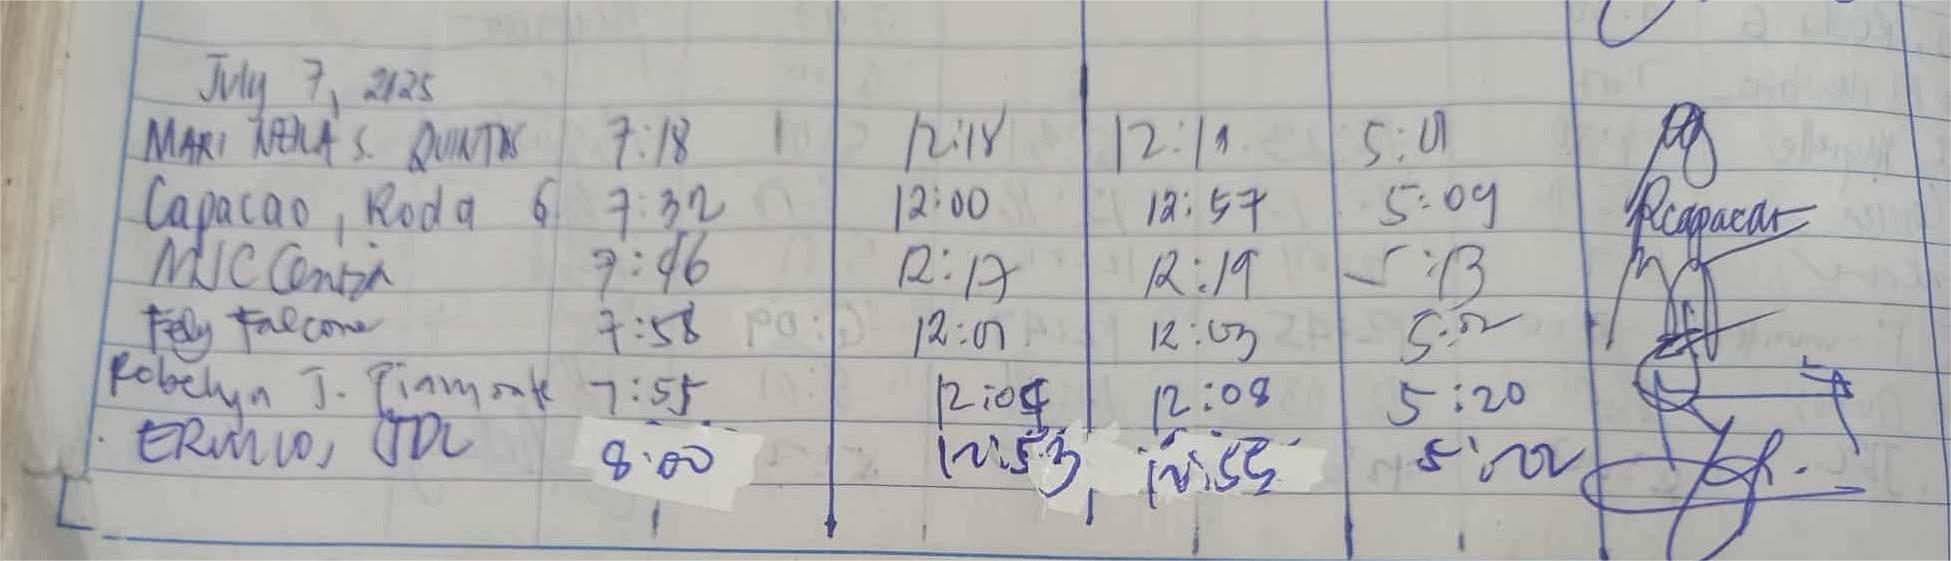 July 7, 2025
MARI NEHA S. QUINTOS 7:18 12:18 12:19 5:01
Capacao, Roda G 7:32 12:00 12:57 5:09 Rcapacao
MJC 7:46 12:17 12:19 5:13
Fely Falcone 7:58 12:01 12:03 5:02
Robelyn J. Piamonte 7:55 12:04 12:08 5:20
ERMIO, JDL 8:00 12:53 12:55 5:02